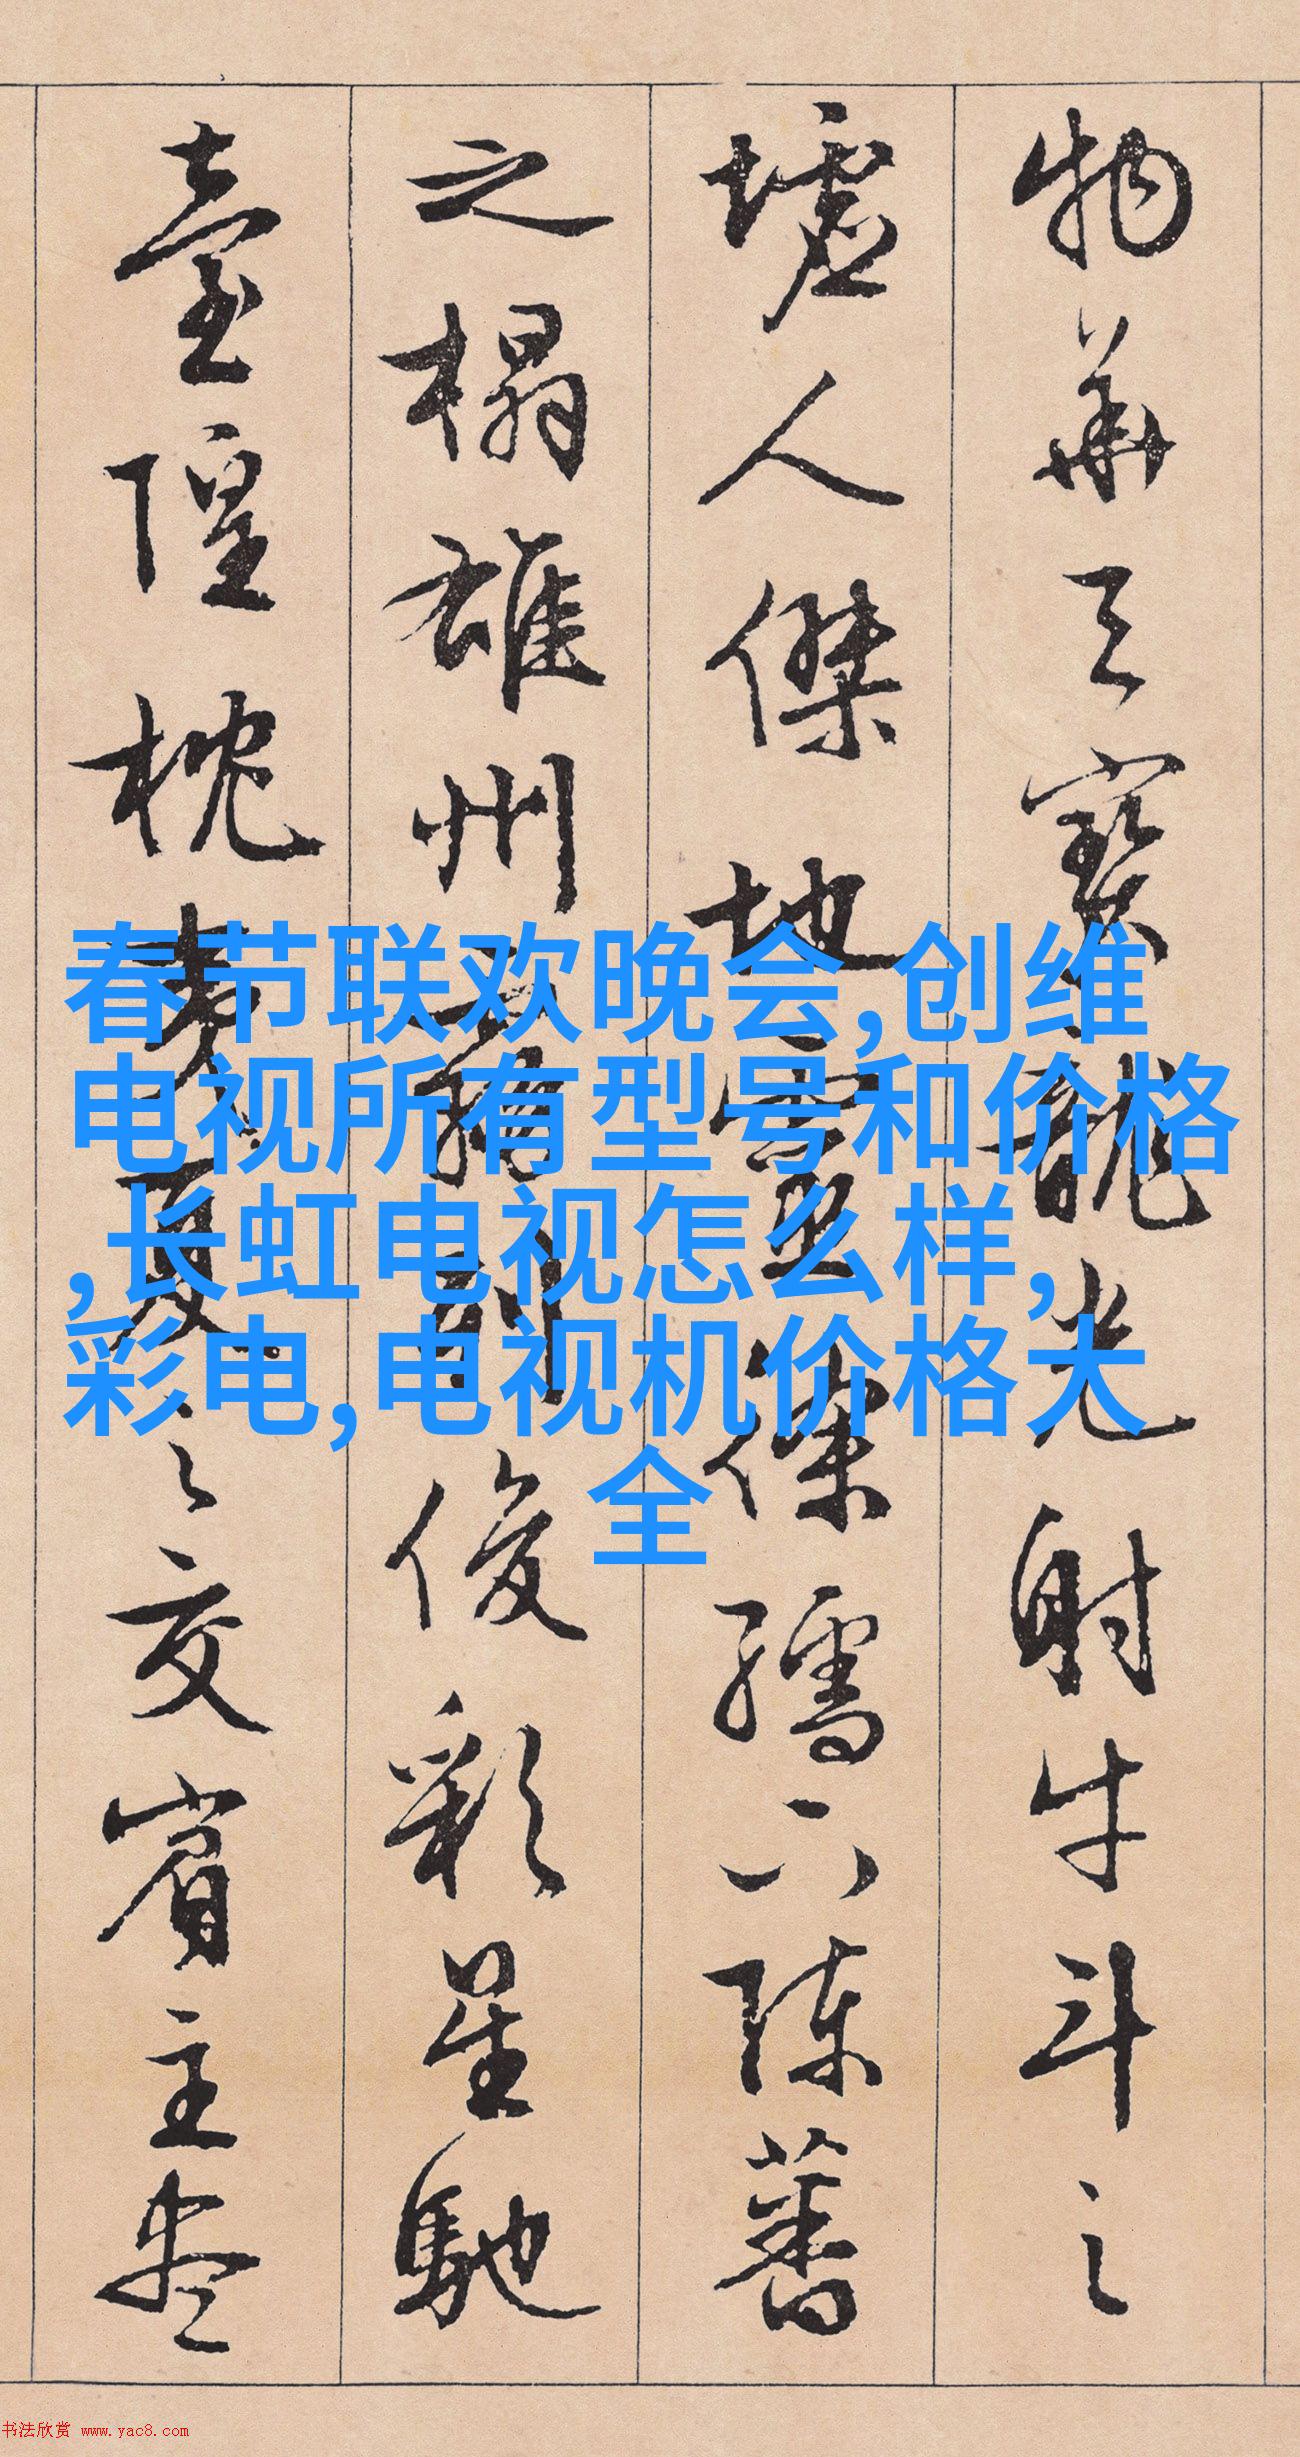 物華天寶龍光射牛斗之
墟人傑地靈徐孺下陳蕃
之榻雄州霧列俊彩星馳
臺隍枕夷夏之交賓主盡
春节联欢晚会,创维
电视所有型号和价格
,长虹电视怎么样,
彩电,电视机价格大
全
书法欣赏 www.yac8.com